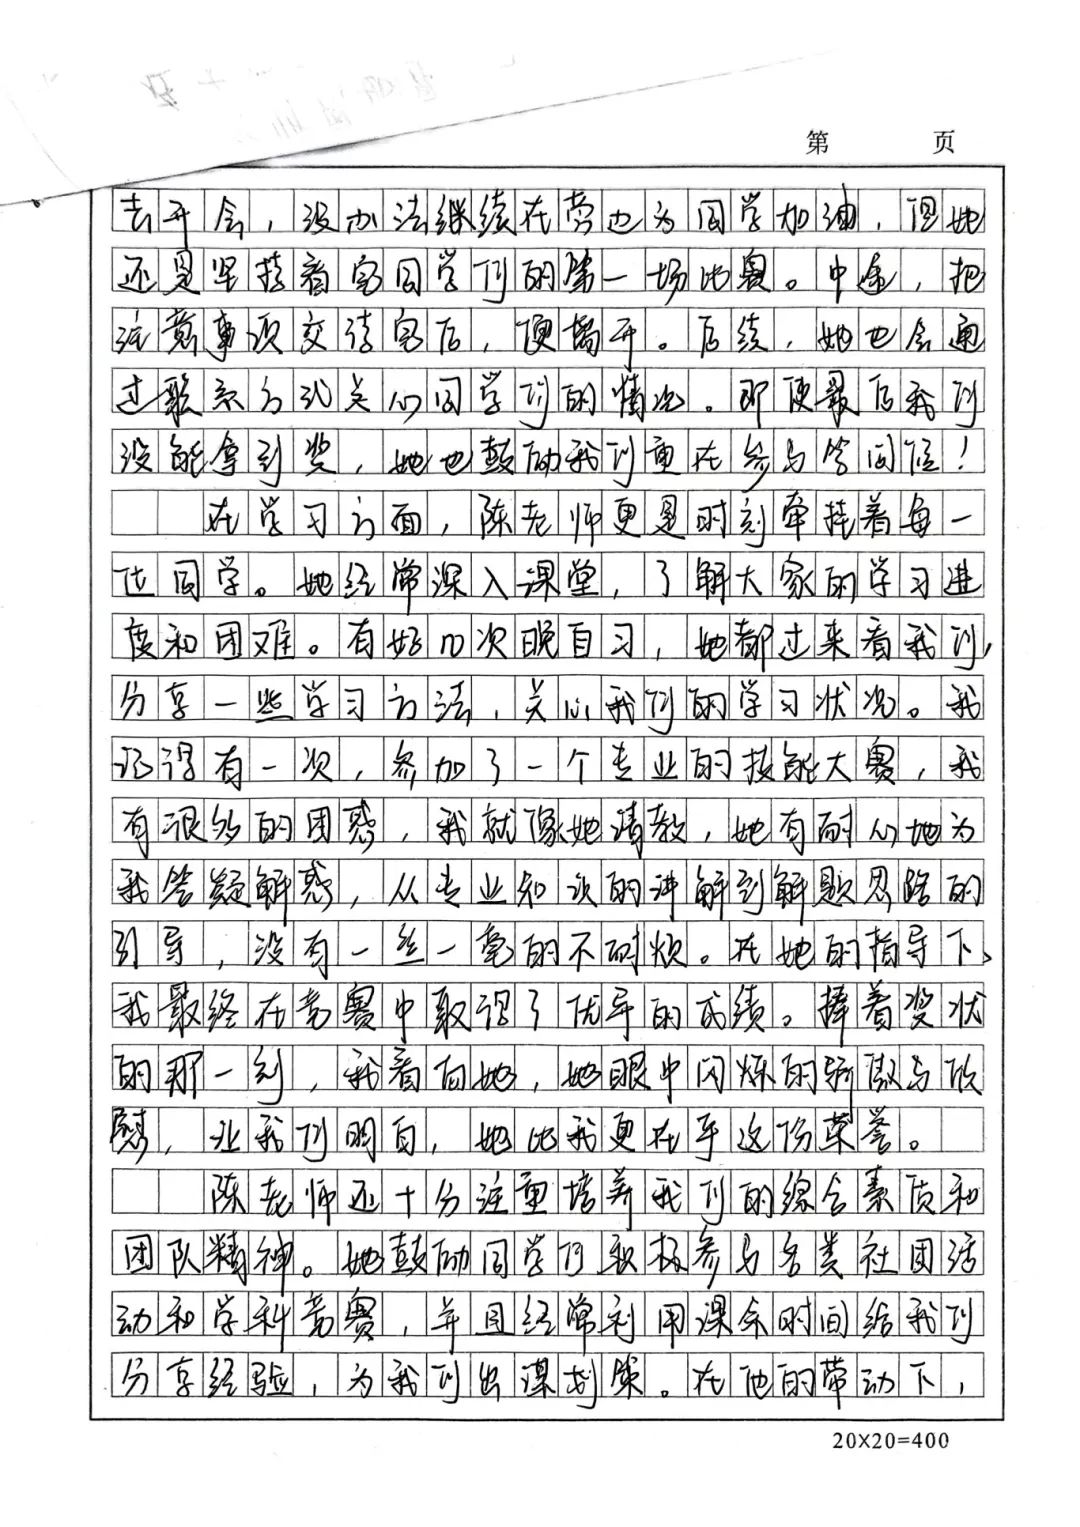 第 页
去开会，没办法继续在旁边为同学加油，但她
还是坚持看完同学们的第一场比赛。中途，把
注意事项交待完后，便离开。后续，她也会通
过联系方式关心同学们的情况。即便最后我们
没能拿到奖，她也鼓励我们重在参与
在学习方面，陈老师更是时刻牵挂着每一
位同学。她经常深入课堂，了解大家的学习进
度和困难。有好几次晚自习，她都过来看我们，
分享一些学习方法，关心我们的学习状况。我
记得有一次，参加了一个专业的技能大赛，我
有很多的困惑，我就像她请教，她有耐心地为
我答疑解惑，从专业知识的讲解到解题思路的
引导，没有一丝一毫的不耐烦。在她的指导下，
我最终在竞赛中取得了优异的成绩。捧着奖状
的那一刻，我看向她，她眼中闪烁的骄傲与欣
慰，让我们明白，她比我更在乎这份荣誉。
陈老师还十分注重培养我们的综合素质和
团队精神。她鼓励同学们积极参与各类社团活
动和学科竞赛，并且经常利用课余时间给我们
分享经验，为我们出谋划策。在他的带动下，
20×20=400